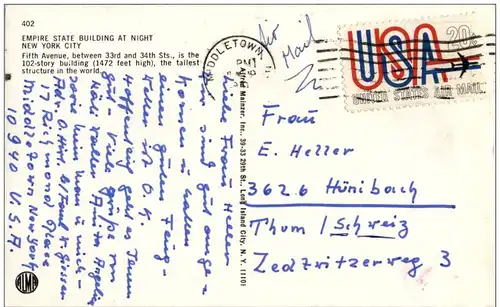 402
EMPIRE STATE BUILDING AT NIGHT
NEW YORK CITY
Fifth Avenue, between 33rd and 34th Sts., is the
102-story building (1472 feet high), the tallest
structure in the world.
Liebe Frau Heller
Wir sind gut ange-
kommen u. hatten
einen guten Flug-
Wetter ist O.K.
Hoffentlich geht es Ihnen
gut - Viele Grüße von
17 Richmond Place
Middletown New York
10940 U.S.A.
ALMA
Alfred Mainzer, Inc., 39-33 29th St., Long Island City, N. Y. 11101
Air
Mail
MIDDLETOWN
PM
USA 20c
UNITED STATES AIR MAIL
Frau
E. Heller
3626 Hünibach
Thun / Schweiz
Zedtwitzerweg 3